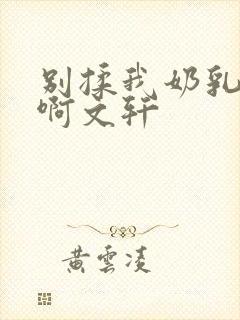 别揉我奶乳
啊文轩
黄雲凌